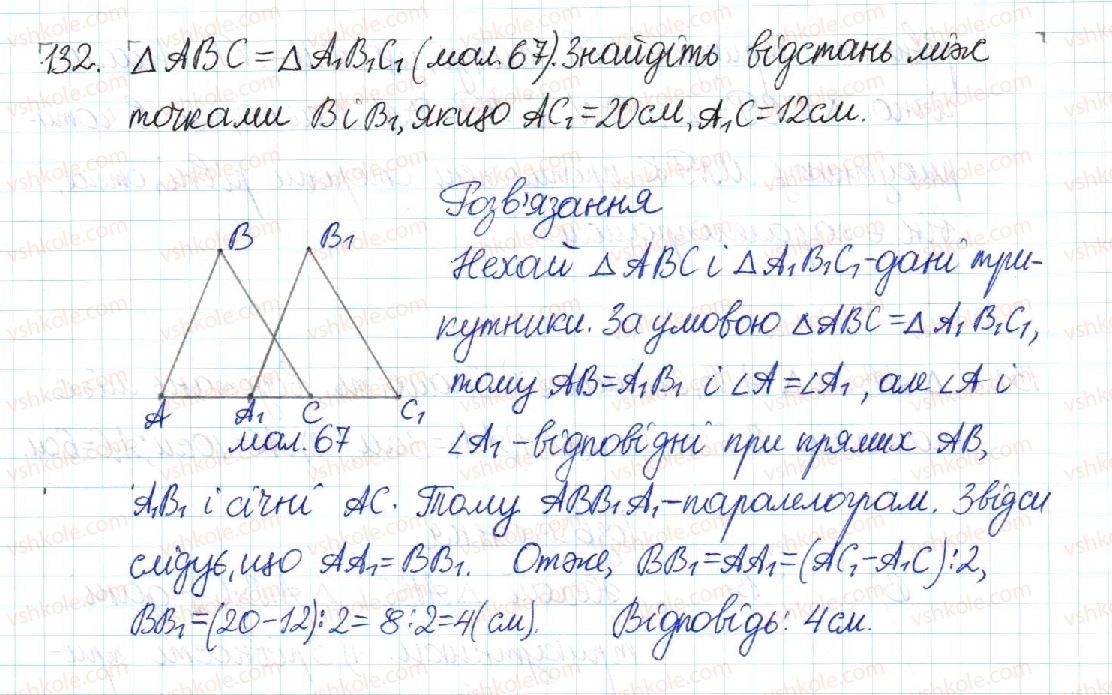 132. △ABC = △A₁B₁C₁ (мал. 67). Знайдіть відстань між
точками B і B₁, якщо AC₁ = 20см, A₁C = 12см.
Розв'язання
B B₁
Нехай △ABC і △A₁B₁C₁ - дані три-
кутники. За умовою △ABC = △A₁B₁C₁,
тому AB = A₁B₁ і ∠A = ∠A₁, але ∠A і
A A₁ C C₁
мал. 67
∠A₁ - відповідні при прямих AB,
A₁B₁ і січні AC. Тому ABB₁A₁ - паралелограм. Звідси
слідує, що AA₁ = BB₁. Отже, BB₁ = AA₁ = (AC₁ - A₁C) : 2,
BB₁ = (20 - 12) : 2 = 8 : 2 = 4 (см). Відповідь: 4 см.
vshkole.com